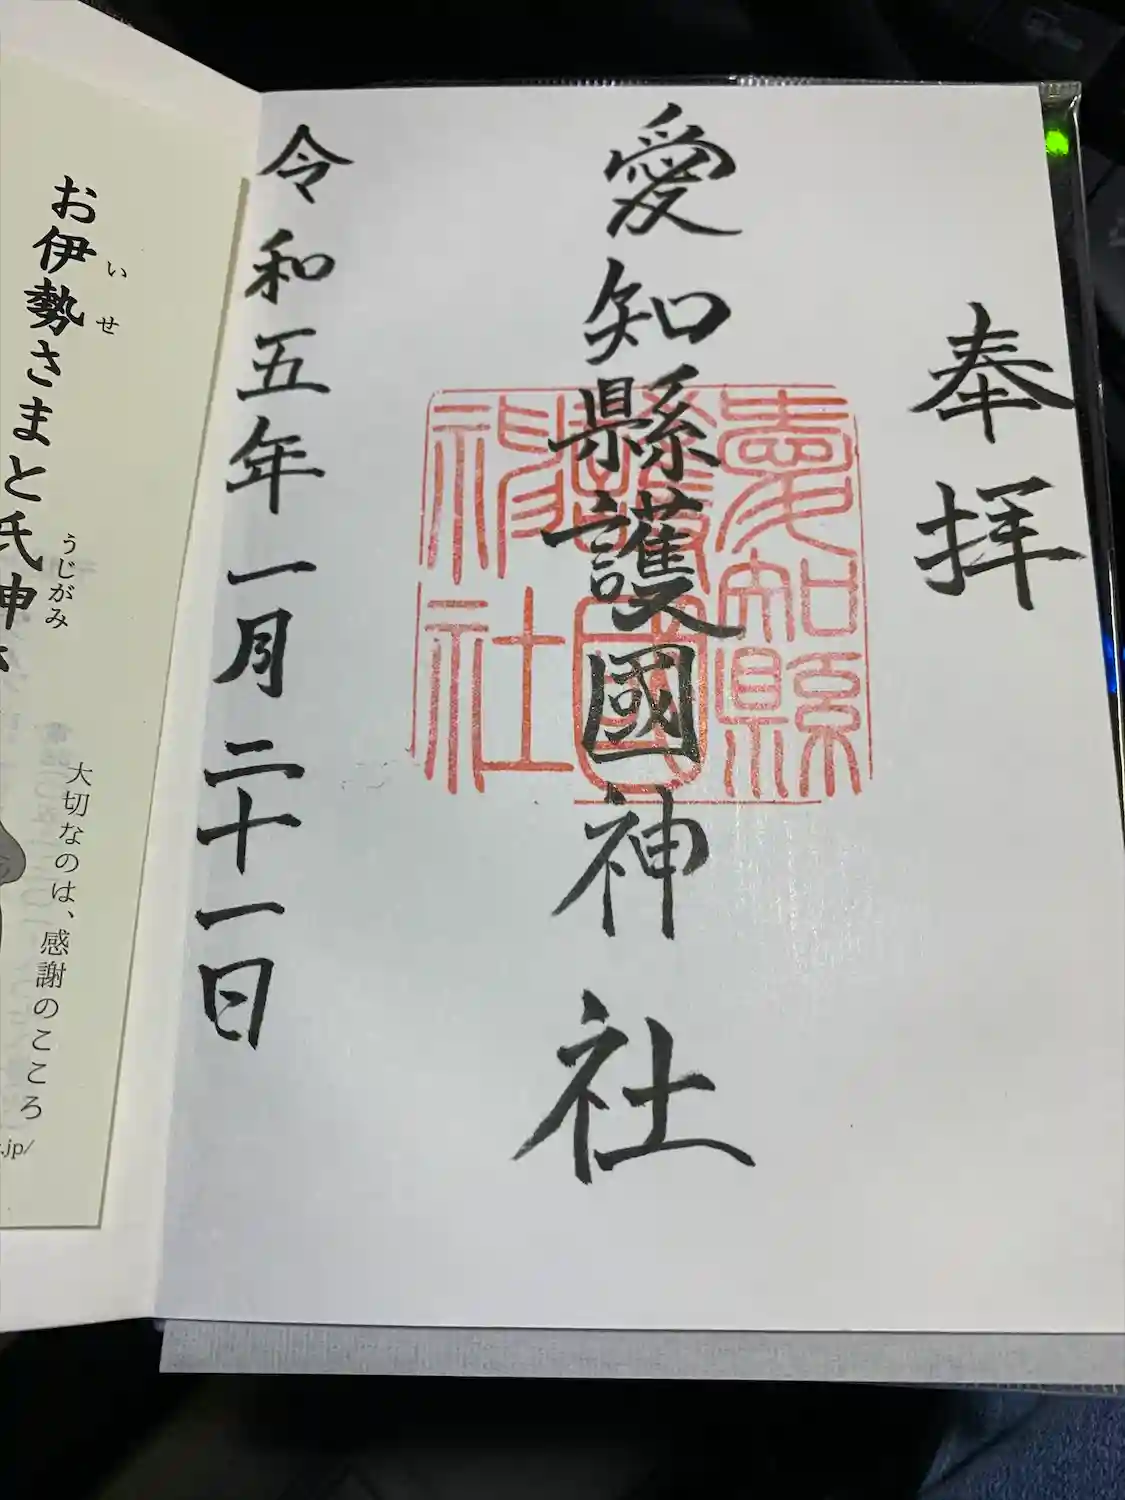 奉拝
愛知縣護國神社
愛知縣
護國
神社
令和五年一月二十一日
いせ
お伊勢さまと氏神
うじがみ
大切なのは、感謝のこころ
.jp/